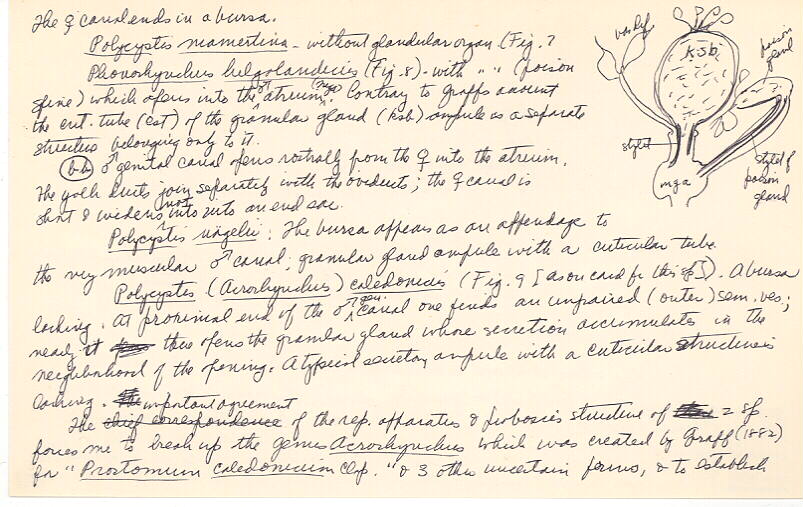 The ♀ canal ends in a bursa.
Polycystis mamertina - without glandular organ (Fig. 7
Phonorhynchus helgolandicus (Fig. 8) - with " " (poison
spine) which opens into the ♂ atrium (mga). Contrary to Graff's account
the ent. tube (est) of the granular gland (ksb) ampule is a separate
structure belonging only to it.
(bb) ♂ genital canal opens rostrally from the ♀ into the atrium.
The yolk ducts join separately with the oviducts; the ♀ canal is
short & widens not into an end sac.
Polycystis nägelii: The bursa appears as an appendage to
the very muscular ♂ canal; granular gland ampule with a cuticular tube
Polycystis (Acrorhynchus) caledonicus (Fig. 9 [also on card for this sp.]). A bursa
lacking. At proximal end of the ♂ gen. canal one finds an unpaired (outer) sem. ves.;
near it there opens the granular gland whose secretion accumulates in the
neighborhood of the opening. A typical secretory ampule with a cuticular structure is
lacking.
The important agreement of the rep. apparatus & proboscis structure of 2 sp.
forces me to break up the genus Acrorhynchus which was created by Graff (1882)
for "Prostomum caledonicum Clap." & 3 other uncertain forms, & to establish
vas def
ksb
poison gland
stylet
mga
stylet of poison gland